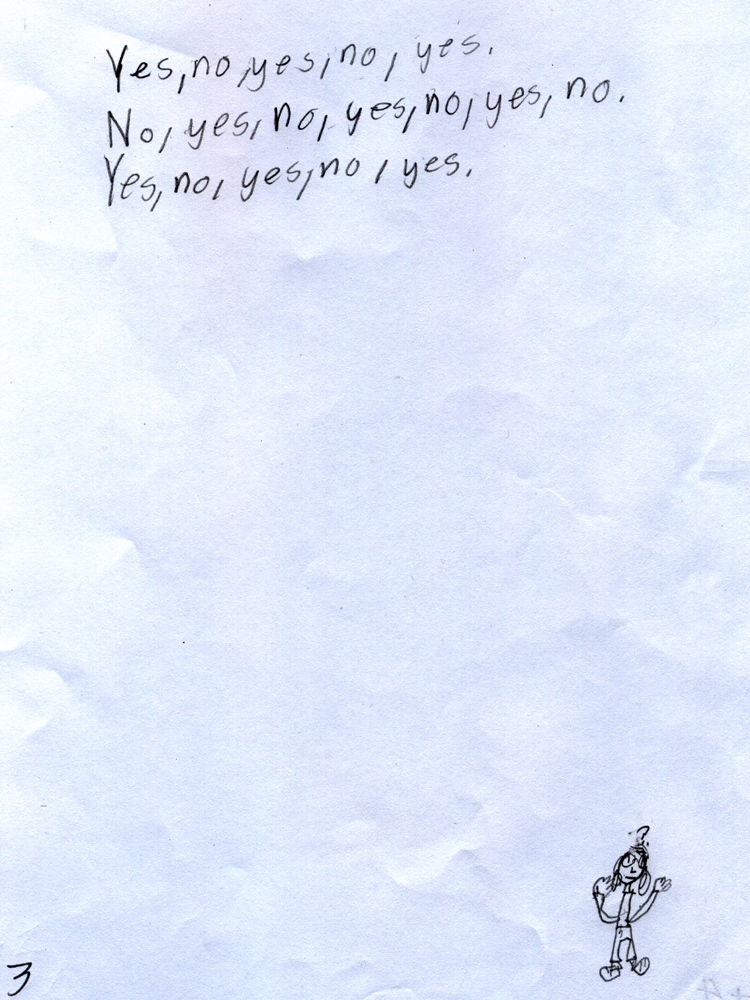 Yes, no, yes, no, yes.
No, yes, no, yes, no, yes, no.
Yes, no, yes, no, yes.
?
3